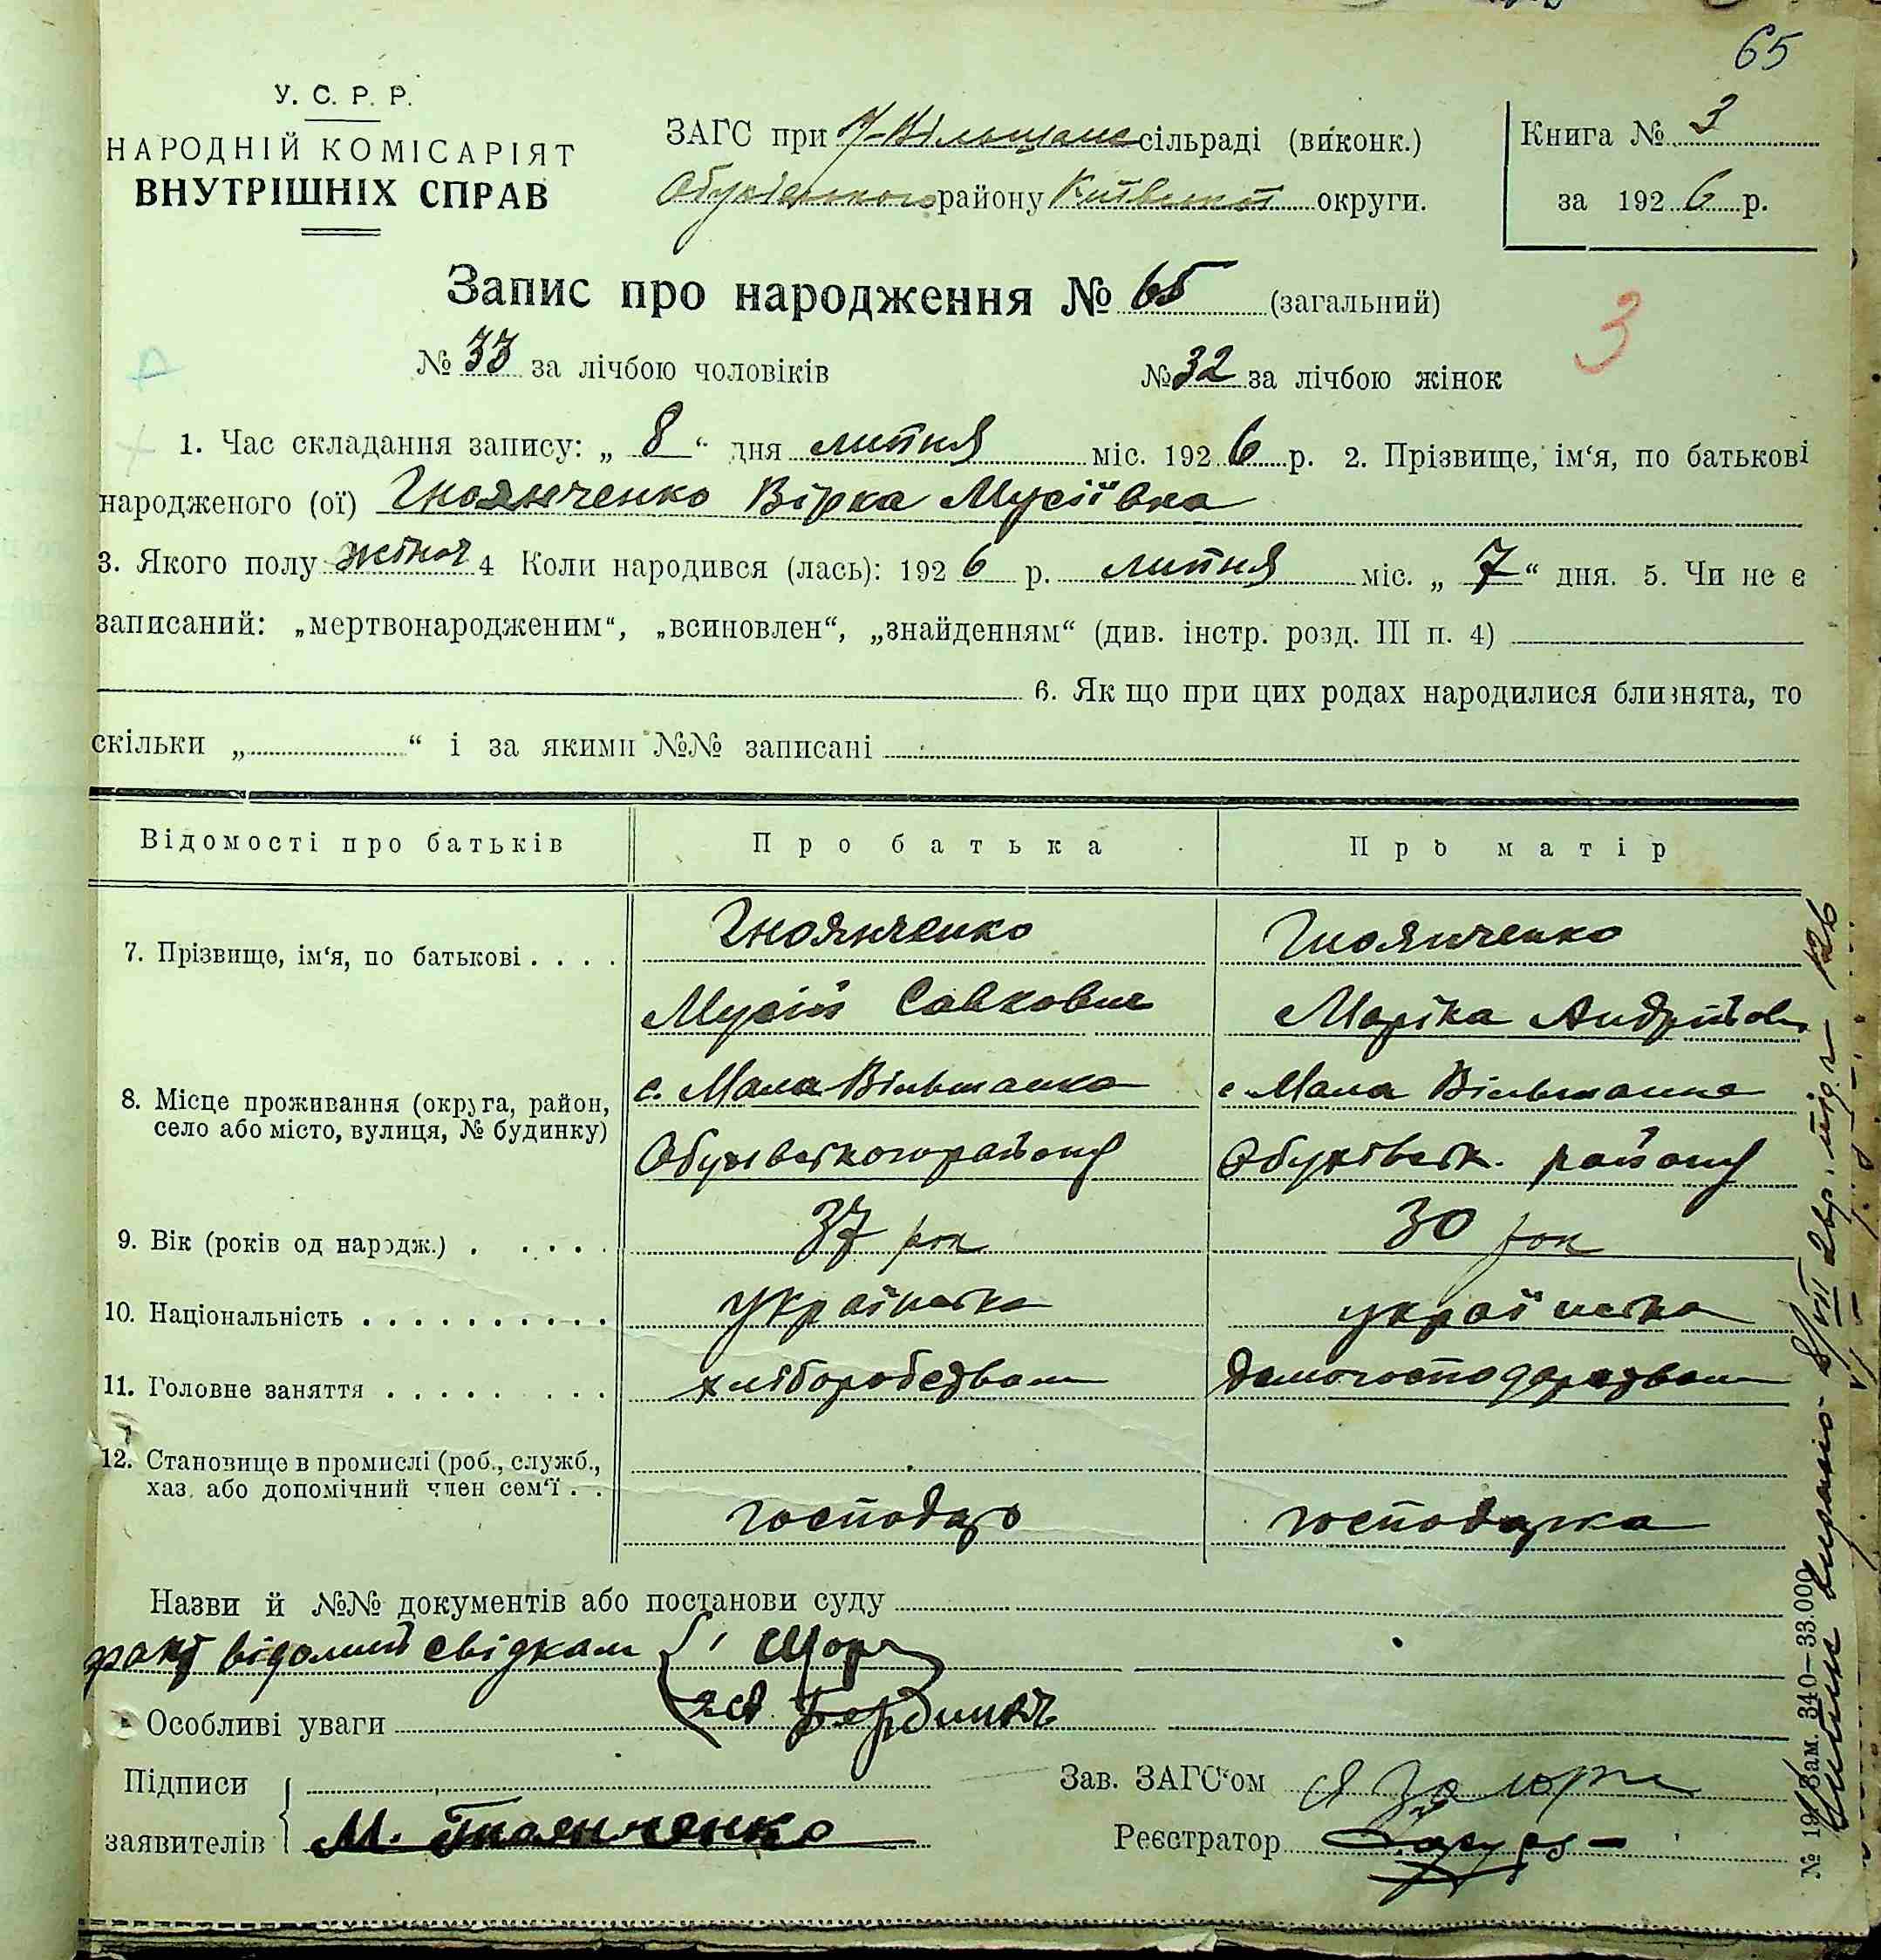 65
У. С. Р. Р.
НАРОДНІЙ КОМІСАРІЯТ
ВНУТРІШНІХ СПРАВ
ЗАГС при сільраді (виконк.)
Обухівського району Київської округи.
Книга № 3
за 1926 р.
Запис про народження № 65 (загальний)
3
№ 33 за лічбою чоловіків № 32 за лічбою жінок
1. Час складання запису: „ 8 “ дня липня міс. 1926 р. 2. Прізвище, ім‘я, по батькові
народженого (ої) Гноянченко Вірка Мусіївна
3. Якого полу жіноч 4 Коли народився (лась): 1926 р. липня міс. „ 7 “ дня. 5. Чи не є
записаний: „мертвонародженим“, „всиновлен“, „знайденням“ (див. інстр. розд. III п. 4)
6. Як що при цих родах народилися близнята, то
скільки „ “ і за якими №№ записані
Відомості про батьків Про батька Про матір
7. Прізвище, ім‘я, по батькові . . . . Гноянченко Гноянченко
Мусій Савкович Маріка Андрійов
8. Місце проживання (округа, район, с. Мала Вільшанка с Мала Вільшанка
село або місто, вулиця, № будинку)
Обухівського району Обухівськ. району
9. Вік (років од народж.) . . . . . 37 рок 30 рок
10. Національність . . . . . . . . . . українська українська
11. Головне заняття . . . . . . . . . хліборобством домогосподарством
12. Становище в промислі (роб., служб.,
хаз. або допомічний член сем‘ї . .
господар господарка
Назви й №№ документів або постанови суду
факт відомий свідкам
Особливі уваги
Підписи Зав. ЗАГС‘ом
заявителів М. Гноянченко Реєстратор
Зам. 340—33.000